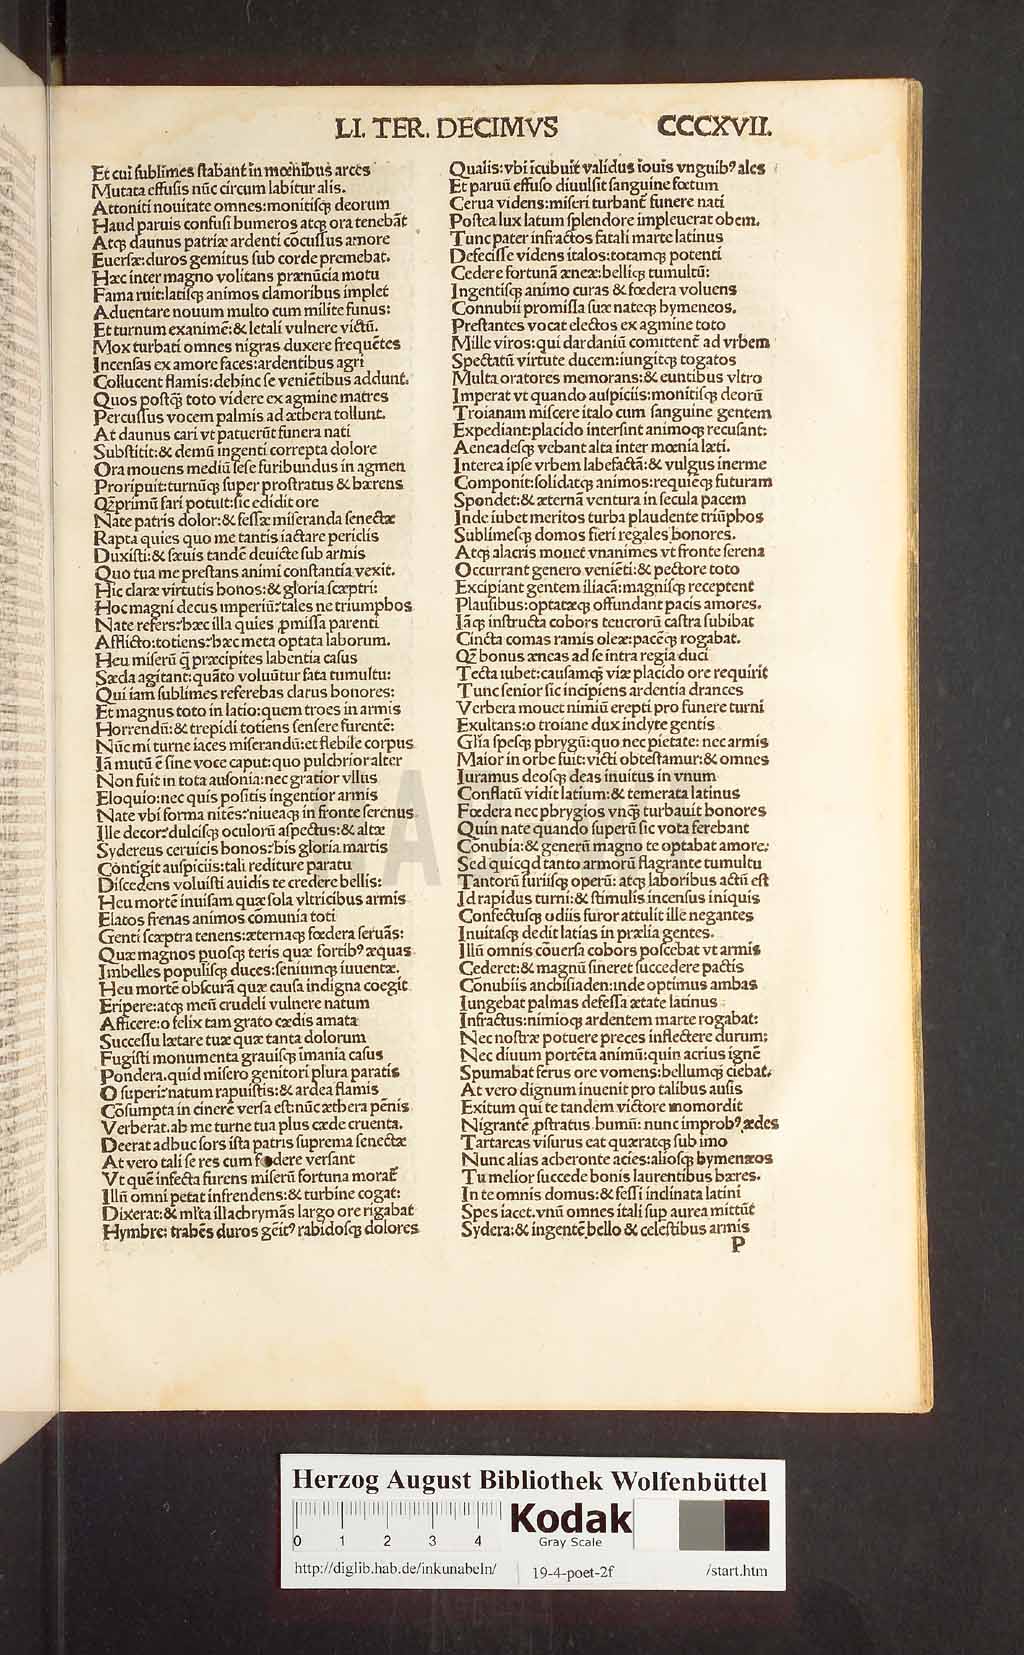 LI. TER. DECIMVS CCCXVII.
Et cui ſublimes ſtabant in mœnibus arces
Mutata effuſis nūc circum labitur alis.
Attoniti nouitate omnes:monitiſqꝫ deorum
Haud paruis confuſi humeros atqꝫ ora tenebāt
Atqꝫ daunus patriæ ardenti cōcuſſus amore
Euerſæ:duros gemitus ſub corde premebat.
Hæc inter magno volitans prænūcia motu
Fama ruit:latiſqꝫ animos clamoribus implet
Aduentare nouum multo cum milite funus:
Et turnum exanimē:& letali vulnere victū.
Mox turbati omnes nigras duxere frequētes
Incenſas ex amore faces:ardentibus agri
Collucent flāmis:debinc ſe veniētibus addunt.
Quos poſtqꝫ toto videre ex agmine matres
Percuſſus vocem palmis ad æthera tollunt.
At daunus cari vt patuerūt funera nati
Subſtitit:& demū ingenti correpta dolore
Ora mouens mediū ſeſe furibundus in agmen
Proripuit:turnūqꝫ ſuper proſtratus & hærens
Qꝫprimū fari potuit:ſic edidit ore
Nate patris dolor:& feſſæ miſeranda ſenectæ
Rapta quies quo me tantis iactare periclis
Duxiſti:& ſæuis tandē deuicte ſub armis
Quo tua me preſtans animi conſtantia vexit.
Hic claræ virtutis honos:& gloria ſcæptri:
Hoc magni decus imperiū:tales ne triumphos
Nate refers:hæc illa quies ꝓmiſſa parenti
Afflicto:totiens:hæc meta optata laborum.
Heu miſerū q̄ præcipites labentia caſus
Sæda agitant:quāto voluūtur fata tumultu:
Qui iam ſublimes referebas clarus honores:
Et magnus toto in latio:quem troes in armis
Horrendū:& trepidi totiens ſenſere furentē:
Nūc mi turne iaces miſerandū:et flebile corpus
Iā mutū ē ſine voce caput:quo pulchrior alter
Non fuit in tota auſonia:nec gratior vllus
Eloquio:nec quis poſitis ingentior armis
Nate vbi forma nitēs:niueaqꝫ in fronte ſerenus
Ille decor:dulciſqꝫ oculorū aſpectus:& altæ
Sydereus ceruicis honos:his gloria martis
Contigit auſpiciis:tali rediture paratu
Diſcedens voluiſti auidis te credere bellis:
Heu mortē inuiſam quæ ſola vltricibus armis
Elatos frenas animos cōmunia toti
Genti ſcæptra tenens:æternaqꝫ fœdera ſeruās:
Quæ magnos puoſqꝫ teris quæ fortibꝰ æquas
Imbelles populiſqꝫ duces:ſeniumqꝫ iuuentæ.
Heu mortē obſcurā quæ cauſa indigna coegit
Eripere:atqꝫ meū crudeli vulnere natum
Afficere:o felix tam grato cædis amata
Succeſſu lætare tuæ quæ tanta dolorum
Fugiſti monumenta grauiſqꝫ īmania caſus
Pondera.quid miſero genitori plura paratis
O ſuperi:natum rapuiſtis:& ardea flāmis
Cōſumpta in cinerē verſa eſt:nūc æthera pēnis
Verberat.ab me turne tua plus cæde cruenta.
Deerat adhuc ſors iſta patris ſuprema ſenectæ
At vero tali ſe res cum fœdere verſant
Vt quē infecta furens miſerū fortuna moraꝉ
Illū omni petat infrendens:& turbine cogat:
Dixerat:& mſta illachrymās largo ore rigabat
Hymbre: trahēs duros gēitꝰ rabidoſqꝫ dolores
Qualis:vbi īcubuit validus iouis vnguibꝰ ales
Et paruū effuſo diuulſit ſanguine fœtum
Cerua videns:miſeri turbant̄ funere nati
Poſtea lux latum ſplendore impleuerat obem.
Tunc pater infractos fatali marte latinus
Defeciſſe videns italos:totamqꝫ potenti
Cedere fortunā æneæ:belliqꝫ tumultū:
Ingentiſqꝫ animo curas & fœdera voluens
Connubii promiſſa ſuæ nateqꝫ hymeneos.
Preſtantes vocat electos ex agmine toto
Mille viros:qui dardaniū comittent̄ ad vrbem
Spectatū virtute ducem:iungitqꝫ togatos
Multa oratores memorans:& euntibus vltro
Imperat vt quando auſpiciis:monitiſqꝫ deorū
Troianam miſcere italo cum ſanguine gentem
Expediant:placido interſint animoqꝫ recuſant:
Aeneadeſqꝫ vehant alta inter mœnia læti.
Interea ipſe vrbem labefactā:& vulgus inerme
Componit:ſolidatqꝫ animos:requiēqꝫ futuram
Spondet:& æternā ventura in ſecula pacem
Inde iubet meritos turba plaudente triūphos
Sublimeſqꝫ domos fieri regales honores.
Atqꝫ alacris mouet vnanimes vt fronte ſerena
Occurrant genero veniēti:& pectore toto
Excipiant gentem iliacā:magniſqꝫ receptent
Plauſibus:optatæqꝫ offundant pacis amores.
Iāqꝫ inſtructa cohors teucrorū caſtra ſubibat
Cincta comas ramis oleæ:pacēqꝫ rogabat.
Qꝫ bonus æneas ad ſe intra regia duci
Tecta iubet:cauſamqꝫ viæ placido ore requirit
Tunc ſenior ſic incipiens ardentia drances
Verbera mouet nimiū erepti pro funere turni
Exultans:o troiane dux inclyte gentis
Glīa ſpeſqꝫ phrygū:quo nec pietate: nec armis
Maior in orbe fuit:victi obteſtamur:& omnes
Iuramus deoſqꝫ deas inuitus in vnum
Conflatū vidit latium:& temerata latinus
Fœdera nec phrygios vnqꝫ turbauit honores
Quin nate quando ſuperū ſic vota ferebant
Conubia:& generū magno te optabat amore:
Sed quicqd tanto armorū flagrante tumultu
Tantorū furiiſqꝫ operū: atqꝫ laboribus actū eſt
Id rapidus turni:& ſtimulis incenſus iniquis
Confectuſqꝫ odiis furor attulit ille negantes
Inuitaſqꝫ dedit latias in prælia gentes.
Illū omnis cōuerſa cohors poſcebat vt armis
Cederet:& magnū ſineret ſuccedere pactis
Cōnubiis anchiſiaden:inde optimus ambas
Iungebat palmas defeſſa ætate latinus
Infractus:nimioqꝫ ardentem marte rogabat:
Nec noſtræ potuere preces inflectere durum:
Nec diuum portēta animū:quin acrius ignē
Spumabat ferus ore vomens:bellumqꝫ ciebat.
At vero dignum inuenit pro talibus auſis
Exitum qui te tandem victore momordit
Nigrantē ꝓſtratus humū: nunc improbꝰ ædes
Tartareas viſurus eat quæratqꝫ ſub imo
Nunc alias acheronte acies:alioſqꝫ hymenæos
Tu melior ſuccede bonis laurentibus hæres.
In te omnis domus:& feſſi inclinata latini
Spes iacet.vnū omnes itali ſup aurea mittūt
Sydera:& ingentē bello & celeſtibus armis
P
HAB
Herzog August Bibliothek Wolfenbüttel
0 1 2 3 4
Kodak
Gray Scale
http://diglib.hab.de/inkunabeln/ 19-4-poet-2f /start.htm